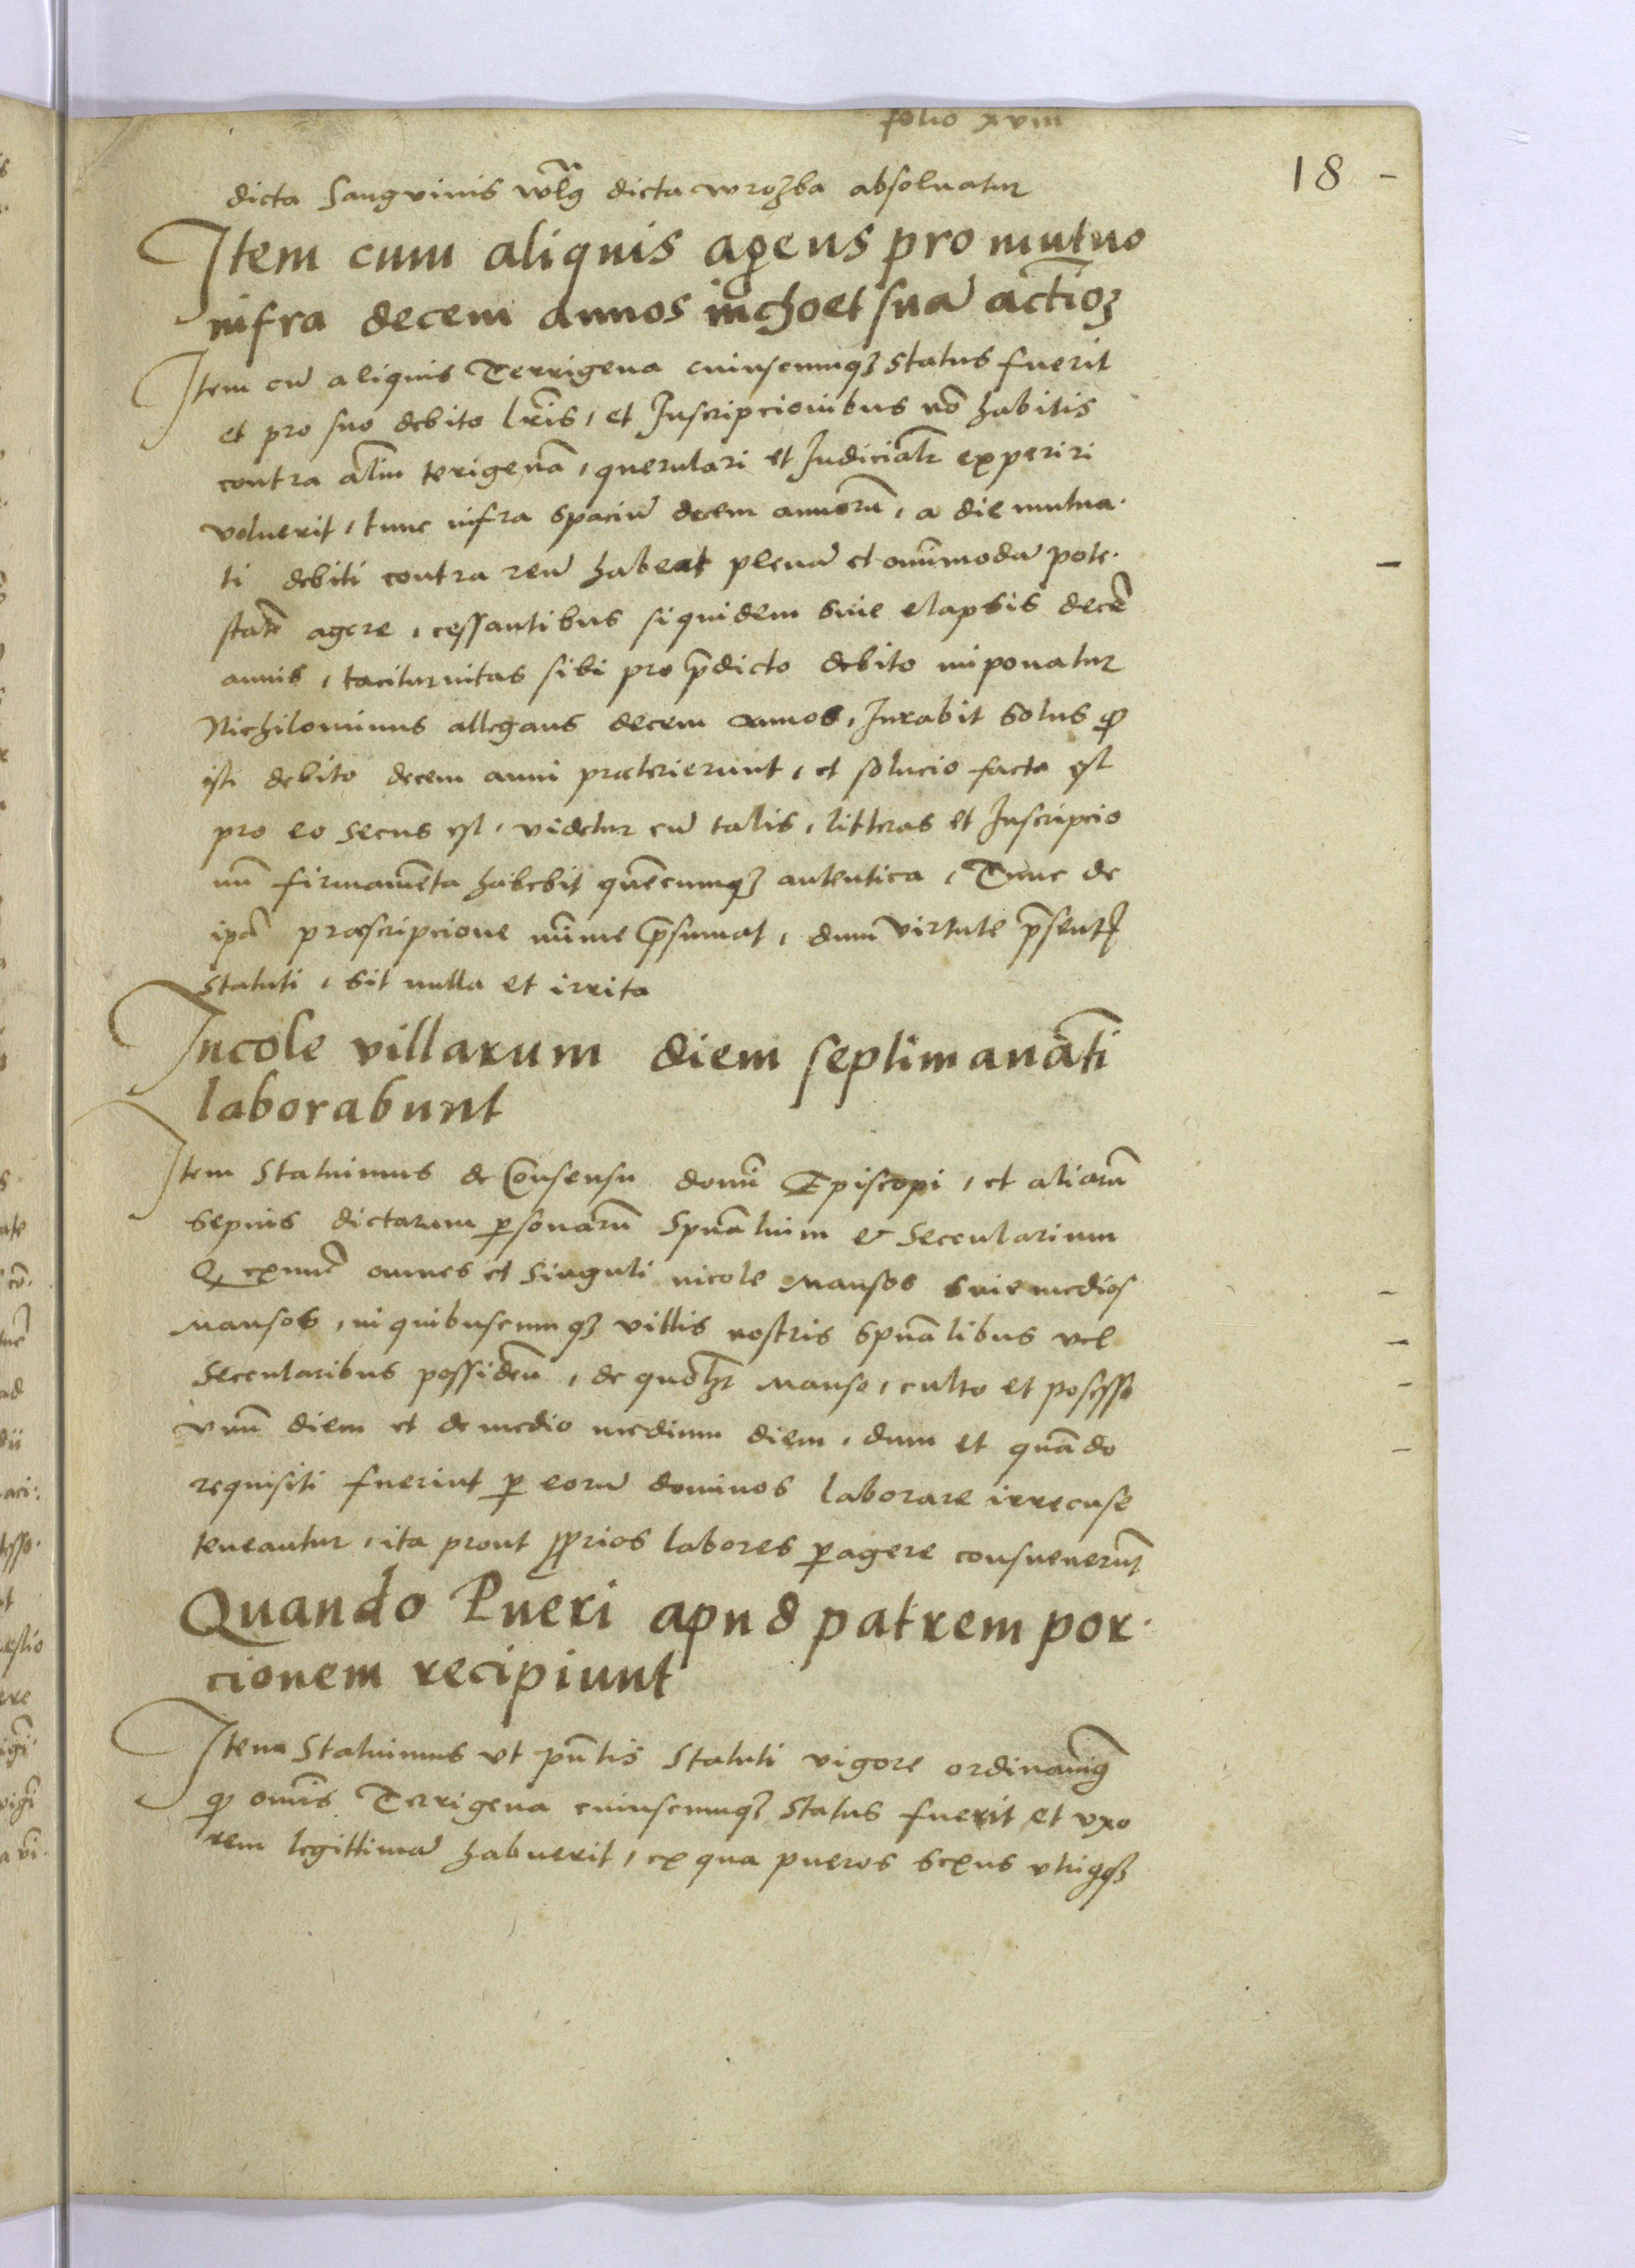 folio xviii
18
dicta Sangvinis wlg̃ dicta wrożba absoluatur
Item cum aliquis agens pro mutuo
infra decem annos inchoet suã actioȝ
Item cũ aliquis Terrigena cuiuscumqȝ status fuerit
et pro suo debito lr̃is, et Inscripcionibus nõ habitis
contra aliũ terigenã, querulari et Iudicialr̃ experiri
voluerit, tunc infra spaciũ decem annorũ, a die mutua-
ti debiti contra reũ habeat plenã et omĩmodã pote-
statẽ agere, cessantibus siquidem siue elapsis decẽ
annis, taciturnitas sibi pro p̃dicto debito imponatur
Nichilominus allegans decem annos, Iurabit solus ꝙ
isti debito decem anni præterierunt, et solucio facta est
pro eo secus est, videtur cũ talis, litteras et Inscripcio
nũ firmamẽta habebit quẽcumqȝ autentica, Tunc de
ip̃a præscripcione mĩme p̃sumat, dum virtute p̃sentꝭ
statuti, sit nulla et irrita
Incole villarum diem septimanãti
laborabunt
Item Statuimus de Consensu domĩ Episcopi, et aliarũ
sepius dictarum ꝑsonarũ Spũalium et Secularium
Q̃ exnũc omnes et Singuli incole Mansos siue medios
Mansos, in quibuscumqȝ villis nostris spũalibus vel
Secularibus possideñ, de quolȝt Manso, culto et possesso
vnũ diem et de medio medium diem, dum et quãdo
requisiti fuerint ꝑ eorũ dominos laborare irrecuse
teneantur, ita prout ꝓprios labores ꝑagere consueuerũt
Quando Pueri apud patrem por-
cionem recipiunt
Item Statuimus vt pñtis Statuti vigore ordinamꝰ
ꝙ omĩs Terrigena cuiuscumqȝ status fuerit et vxo
rem legittimã habuerit, ex qua pueros sexus vtriusqȝ